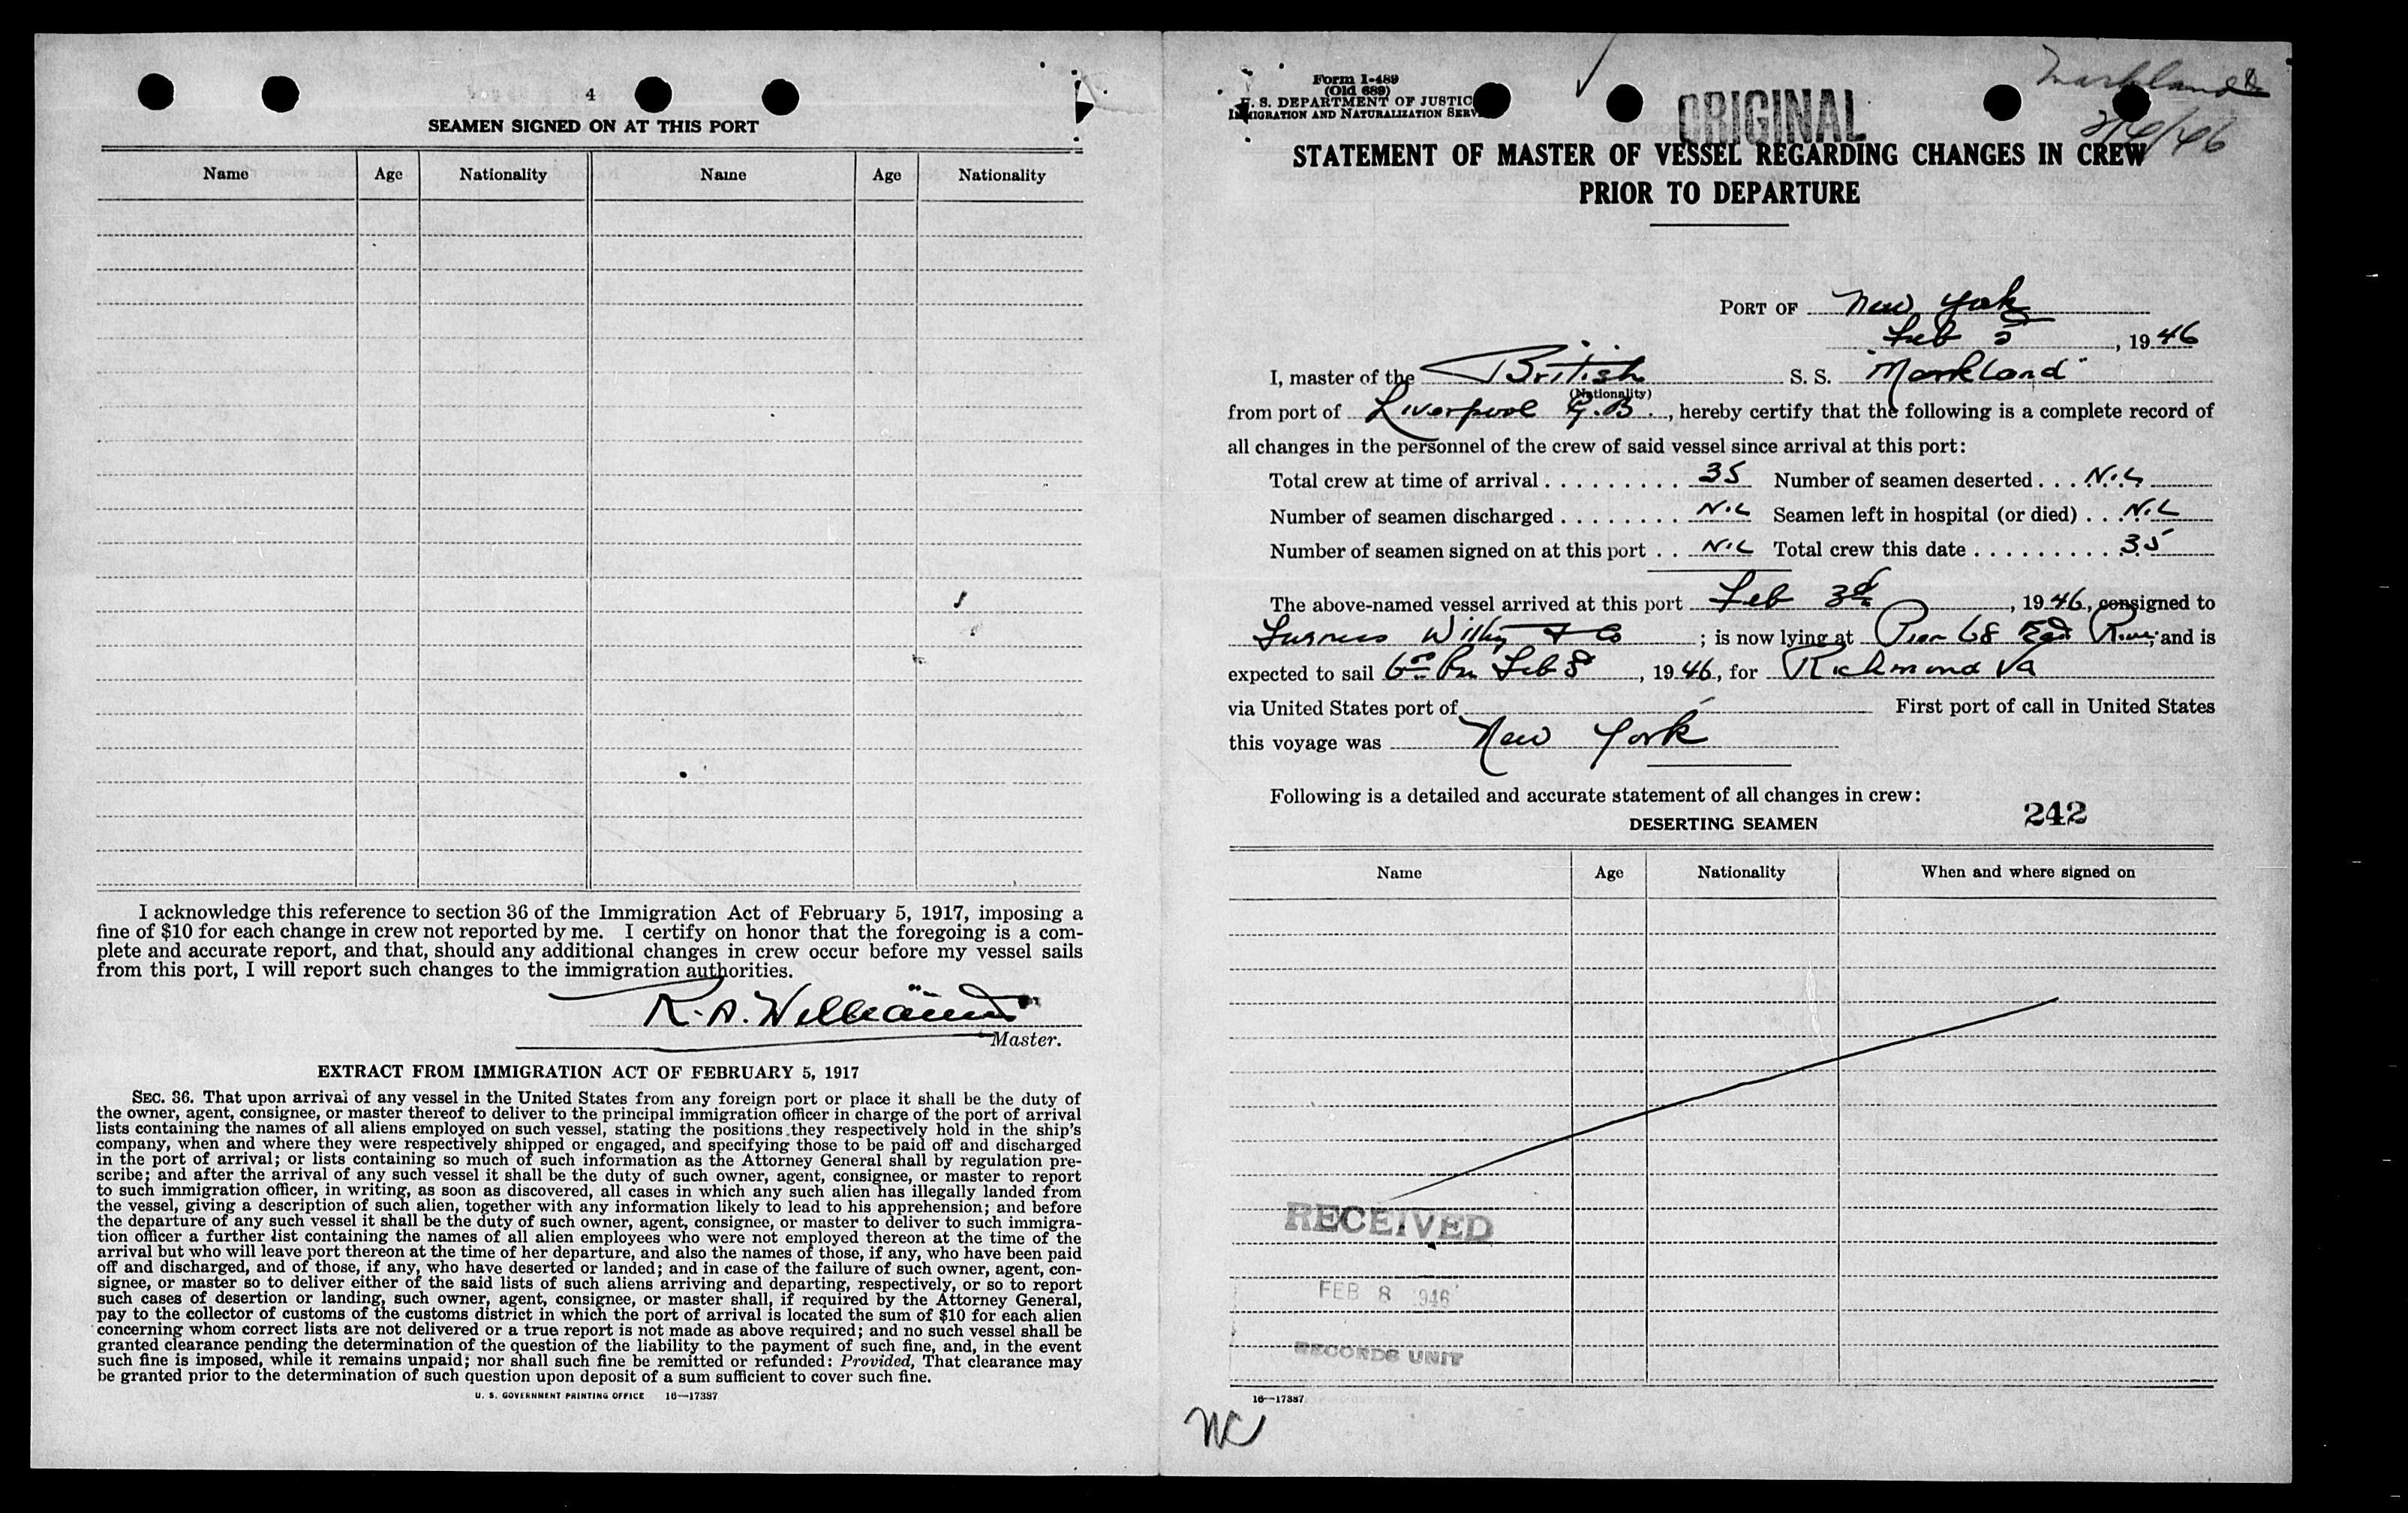 4
SEAMEN SIGNED ON AT THIS PORT
Name Age Nationality Name Age Nationality
I acknowledge this reference to section 36 of the Immigration Act of February 5, 1917, imposing a
fine of $10 for each change in crew not reported by me. I certify on honor that the foregoing is a com-
plete and accurate report, and that, should any additional changes in crew occur before my vessel sails
from this port, I will report such changes to the immigration authorities.
R. A. Williams
Master.
EXTRACT FROM IMMIGRATION ACT OF FEBRUARY 5, 1917
SEC. 36. That upon arrival of any vessel in the United States from any foreign port or place it shall be the duty of
the owner, agent, consignee, or master thereof to deliver to the principal immigration officer in charge of the port of arrival
lists containing the names of all aliens employed on such vessel, stating the positions they respectively hold in the ship's
company, when and where they were respectively shipped or engaged, and specifying those to be paid off and discharged
in the port of arrival; or lists containing so much of such information as the Attorney General shall by regulation pre-
scribe; and after the arrival of any such vessel it shall be the duty of such owner, agent, consignee, or master to report
to such immigration officer, in writing, as soon as discovered, all cases in which any such alien has illegally landed from
the vessel, giving a description of such alien, together with any information likely to lead to his apprehension; and before
the departure of any such vessel it shall be the duty of such owner, agent, consignee, or master to deliver to such immigra-
tion officer a further list containing the names of all alien employees who were not employed thereon at the time of the
arrival but who will leave port thereon at the time of her departure, and also the names of those, if any, who have been paid
off and discharged, and of those, if any, who have deserted or landed; and in case of the failure of such owner, agent, con-
signee, or master so to deliver either of the said lists of such aliens arriving and departing, respectively, or so to report
such cases of desertion or landing, such owner, agent, consignee, or master shall, if required by the Attorney General,
pay to the collector of customs of the customs district in which the port of arrival is located the sum of $10 for each alien
concerning whom correct lists are not delivered or a true report is not made as above required; and no such vessel shall be
granted clearance pending the determination of the question of the liability to the payment of such fine, and, in the event
such fine is imposed, while it remains unpaid; nor shall such fine be remitted or refunded: Provided, That clearance may
be granted prior to the determination of such question upon deposit of a sum sufficient to cover such fine.
U. S. GOVERNMENT PRINTING OFFICE 16—17387
Form I-489
(Old 689)
U. S. DEPARTMENT OF JUSTIC
IMMIGRATION AND NATURALIZATION SERV
ORIGINAL
Markland
/46
STATEMENT OF MASTER OF VESSEL REGARDING CHANGES IN CREW
PRIOR TO DEPARTURE
PORT OF New York
Feb 5, 1946
I, master of the British S. S. "Markland"
(Nationality)
from port of Liverpool G.B., hereby certify that the following is a complete record of
all changes in the personnel of the crew of said vessel since arrival at this port:
Total crew at time of arrival . . . . . . . . . 35 Number of seamen deserted . . . NIL
Number of seamen discharged . . . . . . . . NIL Seamen left in hospital (or died) . . NIL
Number of seamen signed on at this port . . NIL Total crew this date . . . . . . . . . 35
The above-named vessel arrived at this port Feb 3d, 1946, consigned to
Furness Withy & Co; is now lying at Pier 68 East River; and is
expected to sail 6 00 Pm Feb 8, 1946, for Richmond Va
via United States port of First port of call in United States
this voyage was New York
Following is a detailed and accurate statement of all changes in crew:
242
DESERTING SEAMEN
Name Age Nationality When and where signed on
RECEIVED
FEB 8 1946
RECORDS UNIT
16—17387